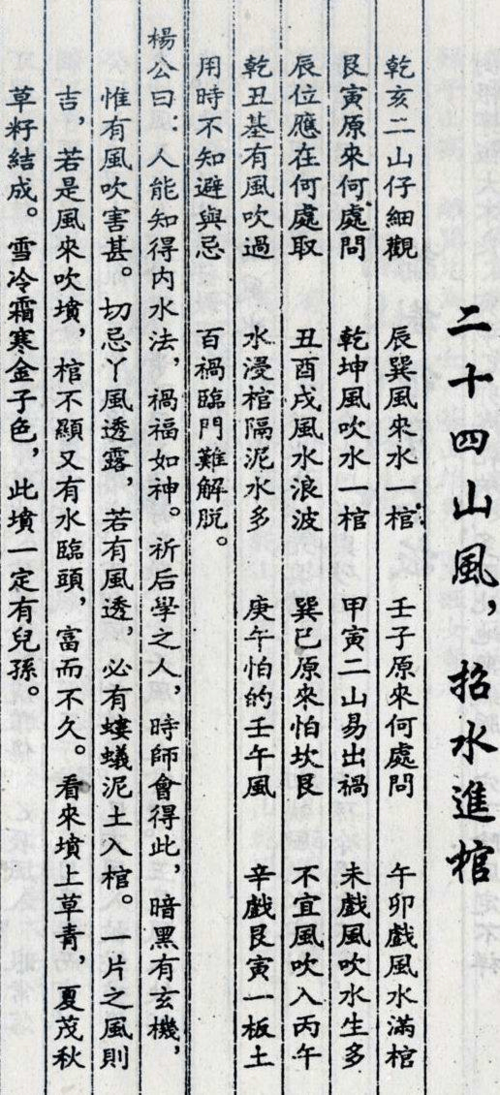 二十四山風，招水進棺
乾亥二山仔細觀　辰巽風來水一棺　壬子原來何處問　午卯戲風水滿棺
艮寅原來何處問　乾坤風吹水一棺　甲寅二山易出禍　未戲風吹水生多
辰位應在何處取　丑酉戌風水浪波　巽巳原來怕坎艮　不宜風吹入丙午
乾丑基有風吹過　水浸棺隔泥水多　庚午怕的壬午風　辛戲艮寅一板土
用時不知避與忌　百禍臨門難解脱。
楊公曰：人能知得内水法，禍福如神。祈后學之人，時師會得此，暗黑有玄機，
惟有風吹害甚。切忌丫風透露，若有風透，必有螻蟻泥土入棺。一片之風則
吉，若是風來吹墳，棺不顯又有水臨頭，富而不久。看來墳上草青，夏茂秋
草籽結成。雪冷霜寒金子色，此墳一定有兒孫。